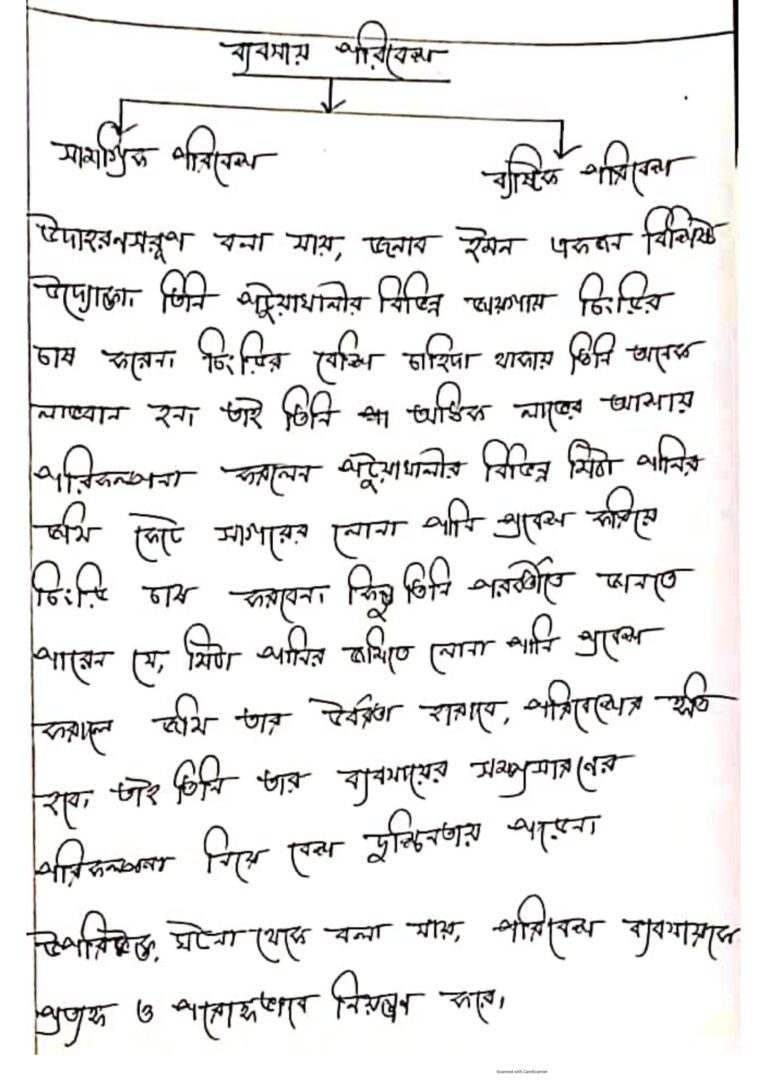 ব্যবসায় পরিবেশ
সামগ্রিক পরিবেশ
ব্যষ্টিক পরিবেশ
উদাহরনসরূপ বলা যায়, জনাব ইমন একজন বিশিষ্ট
উদ্যোক্তা। তিনি পটুয়াখালীর বিভিন্ন জায়গায় চিংড়ির
চাষ করেন। চিংড়ির বেশি চাহিদা থাকায় তিনি অনেক
লাভবান হন। তাই তিনি অধিক লাভের আশায়
পরিকল্পনা করলেন পটুয়াখালীর বিভিন্ন মিঠা পানির
জমি কেটে সাগরের লোনা পানি প্রবেশ করিয়ে
চিংড়ি চাষ করবেন। কিন্তু তিনি পরবর্তীতে জানতে
পারেন যে, মিঠা পানির জমিতে লোনা পানি প্রবেশ
করালে জমি তার উর্বরতা হারাবে, পরিবেশের ক্ষতি
হবে। তাই তিনি তার ব্যবসায়ের সম্প্রসারণের
পরিকল্পনা নিয়ে বেশ দুশ্চিন্তায় পড়েন।
উপরিউক্ত, ঘটনা থেকে বলা যায়, পরিবেশ ব্যবসায়কে
প্রত্যক্ষ ও পরোক্ষভাবে নিয়ন্ত্রন করে।
Scanned with CamScanner